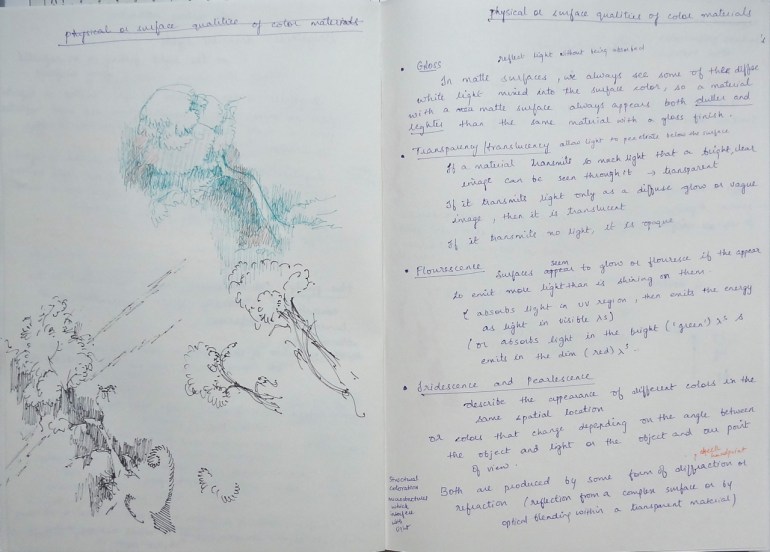 physical or surface qualities of color materials
physical or surface qualities of color materials
• Gloss reflect light without being absorbed
In matte surfaces, we always see some of the diffuse
white light mixed into the surface color, so a material
with a matte surface always appears both duller and
lighter than the same material with a gloss finish.
• Transparency/translucency allow light to penetrate below the surface
If a material transmits so much light that a bright, clear
image can be seen through it → transparent
If it transmits light only as a diffuse glow or vague
image, then it is translucent
If it transmits no light, it is opaque
• Flourescence surfaces appear seem to glow or flouresce if the appear
to emit more light than is shining on them.
( absorbs light in UV region, then emits the energy
as light in visible λs)
(or absorbs light in the bright ('green') λs &
emits in the dim (red) λs.
• Iridescence and Pearlescence
describe the appearance of different colors in the
same spatial location
or colors that change depending on the angle between
the object and light or the object and our point
of view.
Both are produced by some form of diffraction or
refraction (reflection from a complex surface or by
optical blending within a transparent material)
Structural
coloration
microstructures
which
interfere
with
light